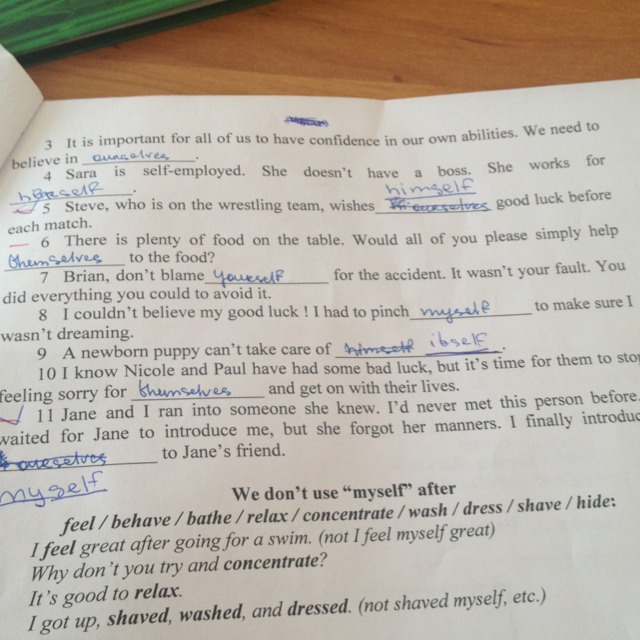 3 It is important for all of us to have confidence in our own abilities. We need to
believe in ourselves.
4 Sara is self-employed. She doesn't have a boss. She works for
herself.
himself
5 Steve, who is on the wrestling team, wishes ourselves good luck before
each match.
6 There is plenty of food on the table. Would all of you please simply help
themselves to the food?
7 Brian, don't blame yourself for the accident. It wasn't your fault. You
did everything you could to avoid it.
8 I couldn't believe my good luck ! I had to pinch myself to make sure I
wasn't dreaming.
9 A newborn puppy can't take care of himself itself.
10 I know Nicole and Paul have had some bad luck, but it's time for them to stop
feeling sorry for themselves and get on with their lives.
11 Jane and I ran into someone she knew. I'd never met this person before.
waited for Jane to introduce me, but she forgot her manners. I finally introduc
ourselves to Jane's friend.
myself
We don't use "myself" after
feel / behave / bathe / relax / concentrate / wash / dress / shave / hide:
I feel great after going for a swim. (not I feel myself great)
Why don't you try and concentrate?
It's good to relax.
I got up, shaved, washed, and dressed. (not shaved myself, etc.)